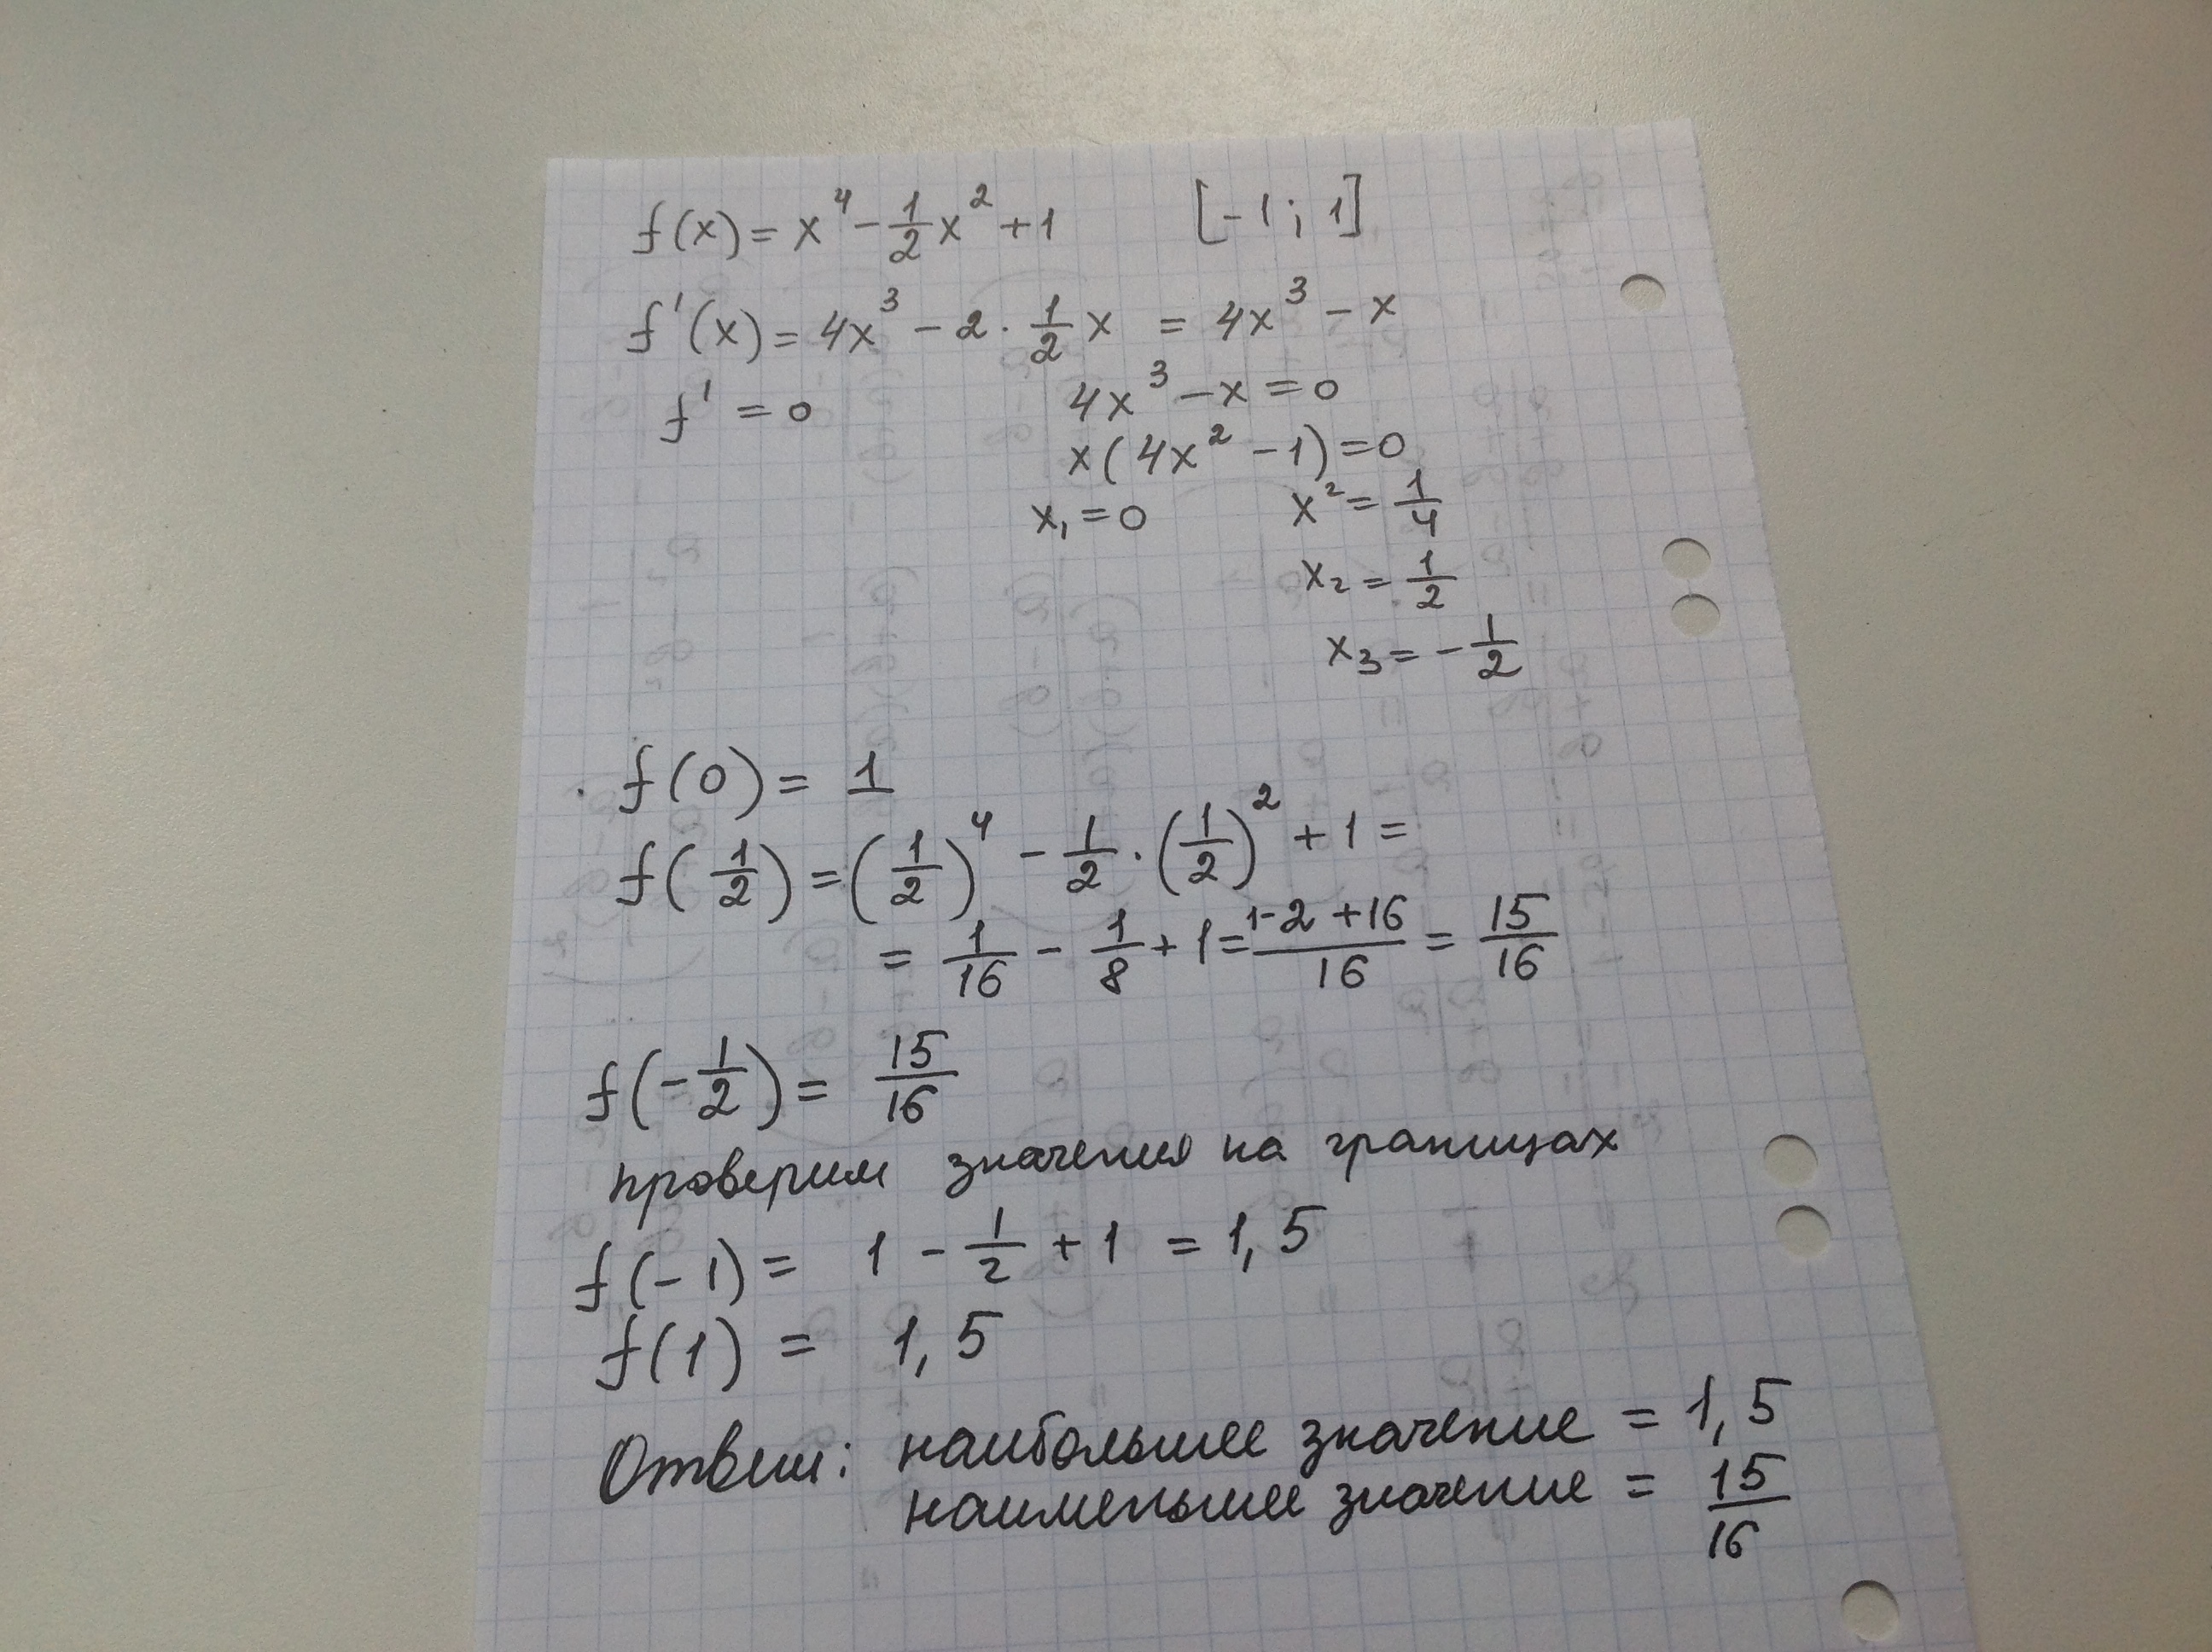 f(x) = x⁴ − 1/2 x² + 1 [−1; 1]
f'(x) = 4x³ − 2 · 1/2 x = 4x³ − x
f' = 0 4x³ − x = 0
x(4x² − 1) = 0
x₁ = 0 x² = 1/4
x₂ = 1/2
x₃ = −1/2
f(0) = 1
f(1/2) = (1/2)⁴ − 1/2 · (1/2)² + 1 =
= 1/16 − 1/8 + 1 = (1−2+16)/16 = 15/16
f(−1/2) = 15/16
проверим значения на границах
f(−1) = 1 − 1/2 + 1 = 1,5
f(1) = 1,5
Ответ: наибольшее значение = 1,5
наименьшее значение = 15/16